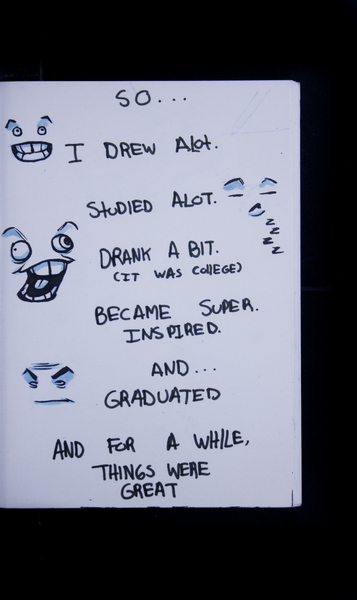 SO...
I DREW Alot.
STUDIED ALOT.
Z
Z
Z
Z
DRANK A BIT.
(IT WAS COllEGE)
BECAME SUPER.
INSPIRED.
AND...
GRADUATED
AND FOR A WHILE,
THINGS WERE
GREAT